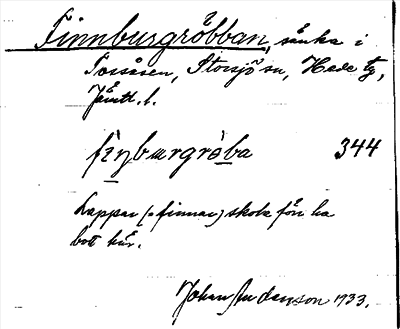 Finnburgröbban, sänka i
Torsåsen, Storsjö sn, Hede tg,
Jämtl. l.
fìnburgrò̤ba 344
Lappar (= finnar) skola förr ha
bott här.
Johan 1933.